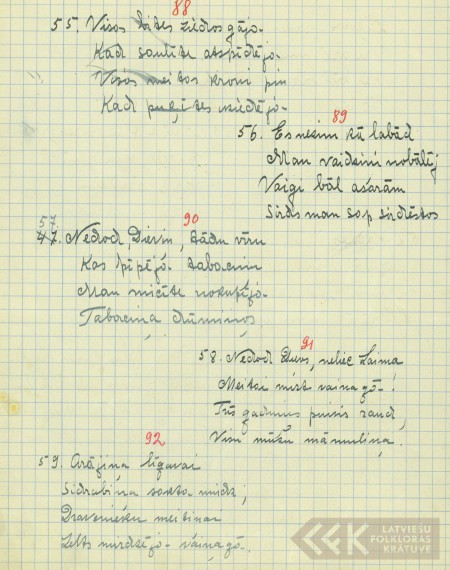 88
55. Visas bites ziedos gājo-
Kad saulīte atspīdējo-
Visas meitas kroni pin
Kad puķītes ziedējo-
89
56. Es nezin kū labād
Man vaidziņi nobālēj
Vaigi bāl asarām
Sirds man sop sirdēstos
90
57
47. Nedod, Dieviņ, tādu vīru
Kas pīpējō- tabaciņu
Man micīte nokupējo-
Tabaciņa dūmiņos
91
58. Nedod Dievs, neliec Laima,
Meitai mirt vainagō-!
Trīs gadiņus puisis raud,
Visu mūžu māmuliņa.
92
59. Arājiņa līgavai
Sidrabiņa sakta mirdz;
Dravenieku meitiņai
Zelts mirdzējō- vainagō-.
LATVIEŠU
FOLKLORAS
KRĀTUVE